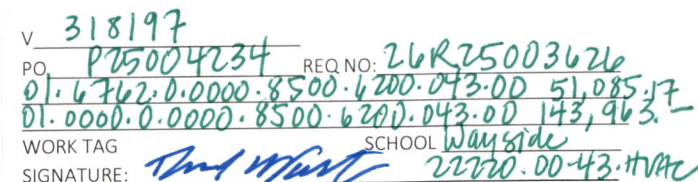 V 318197
PO P25004234 REQ NO: 26R25003626
01.6762.0.0000.8500.6200.043.00 51,085.17
01.0000.0.0000.8500.6200.043.00 143,963.–
WORK TAG SCHOOL Wayside
SIGNATURE: 22220.00-43.HVAC